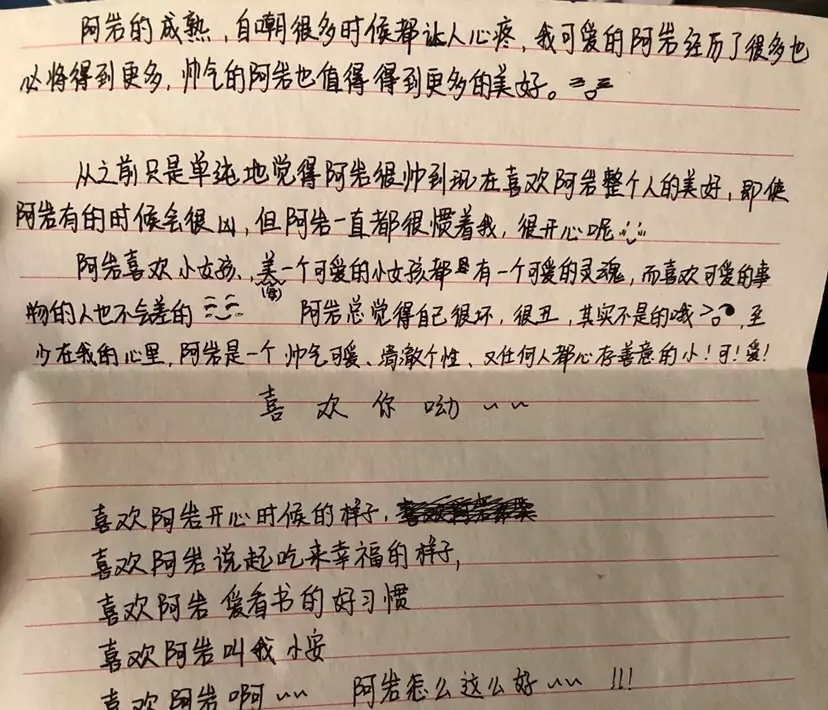 阿岩的成熟，自嘲很多时候都让人心疼，我可爱的阿岩经历了很多也
必将得到更多，帅气的阿岩也值得得到更多的美好。
从之前只是单纯地觉得阿岩很帅到现在喜欢阿岩整个人的美好，即使
阿岩有的时候会很凶，但阿岩一直都很惯着我，很开心呢
阿岩喜欢小女孩、美一个可爱的小女孩都是有一个可爱的灵魂，而喜欢可爱的事
(每)
物的人也不会差的 阿岩总觉得自己很坏，很丑，其实不是的哦，至
少在我的心里，阿岩是一个帅气可爱、清澈个性、又任何人都心存善意的小！可！爱！
喜欢你呦~~
喜欢阿岩开心时候的样子，
喜欢阿岩说起吃来幸福的样子，
喜欢阿岩爱看书的好习惯
喜欢阿岩叫我小安
喜欢阿岩啊~~ 阿岩怎么这么好~~ !!!